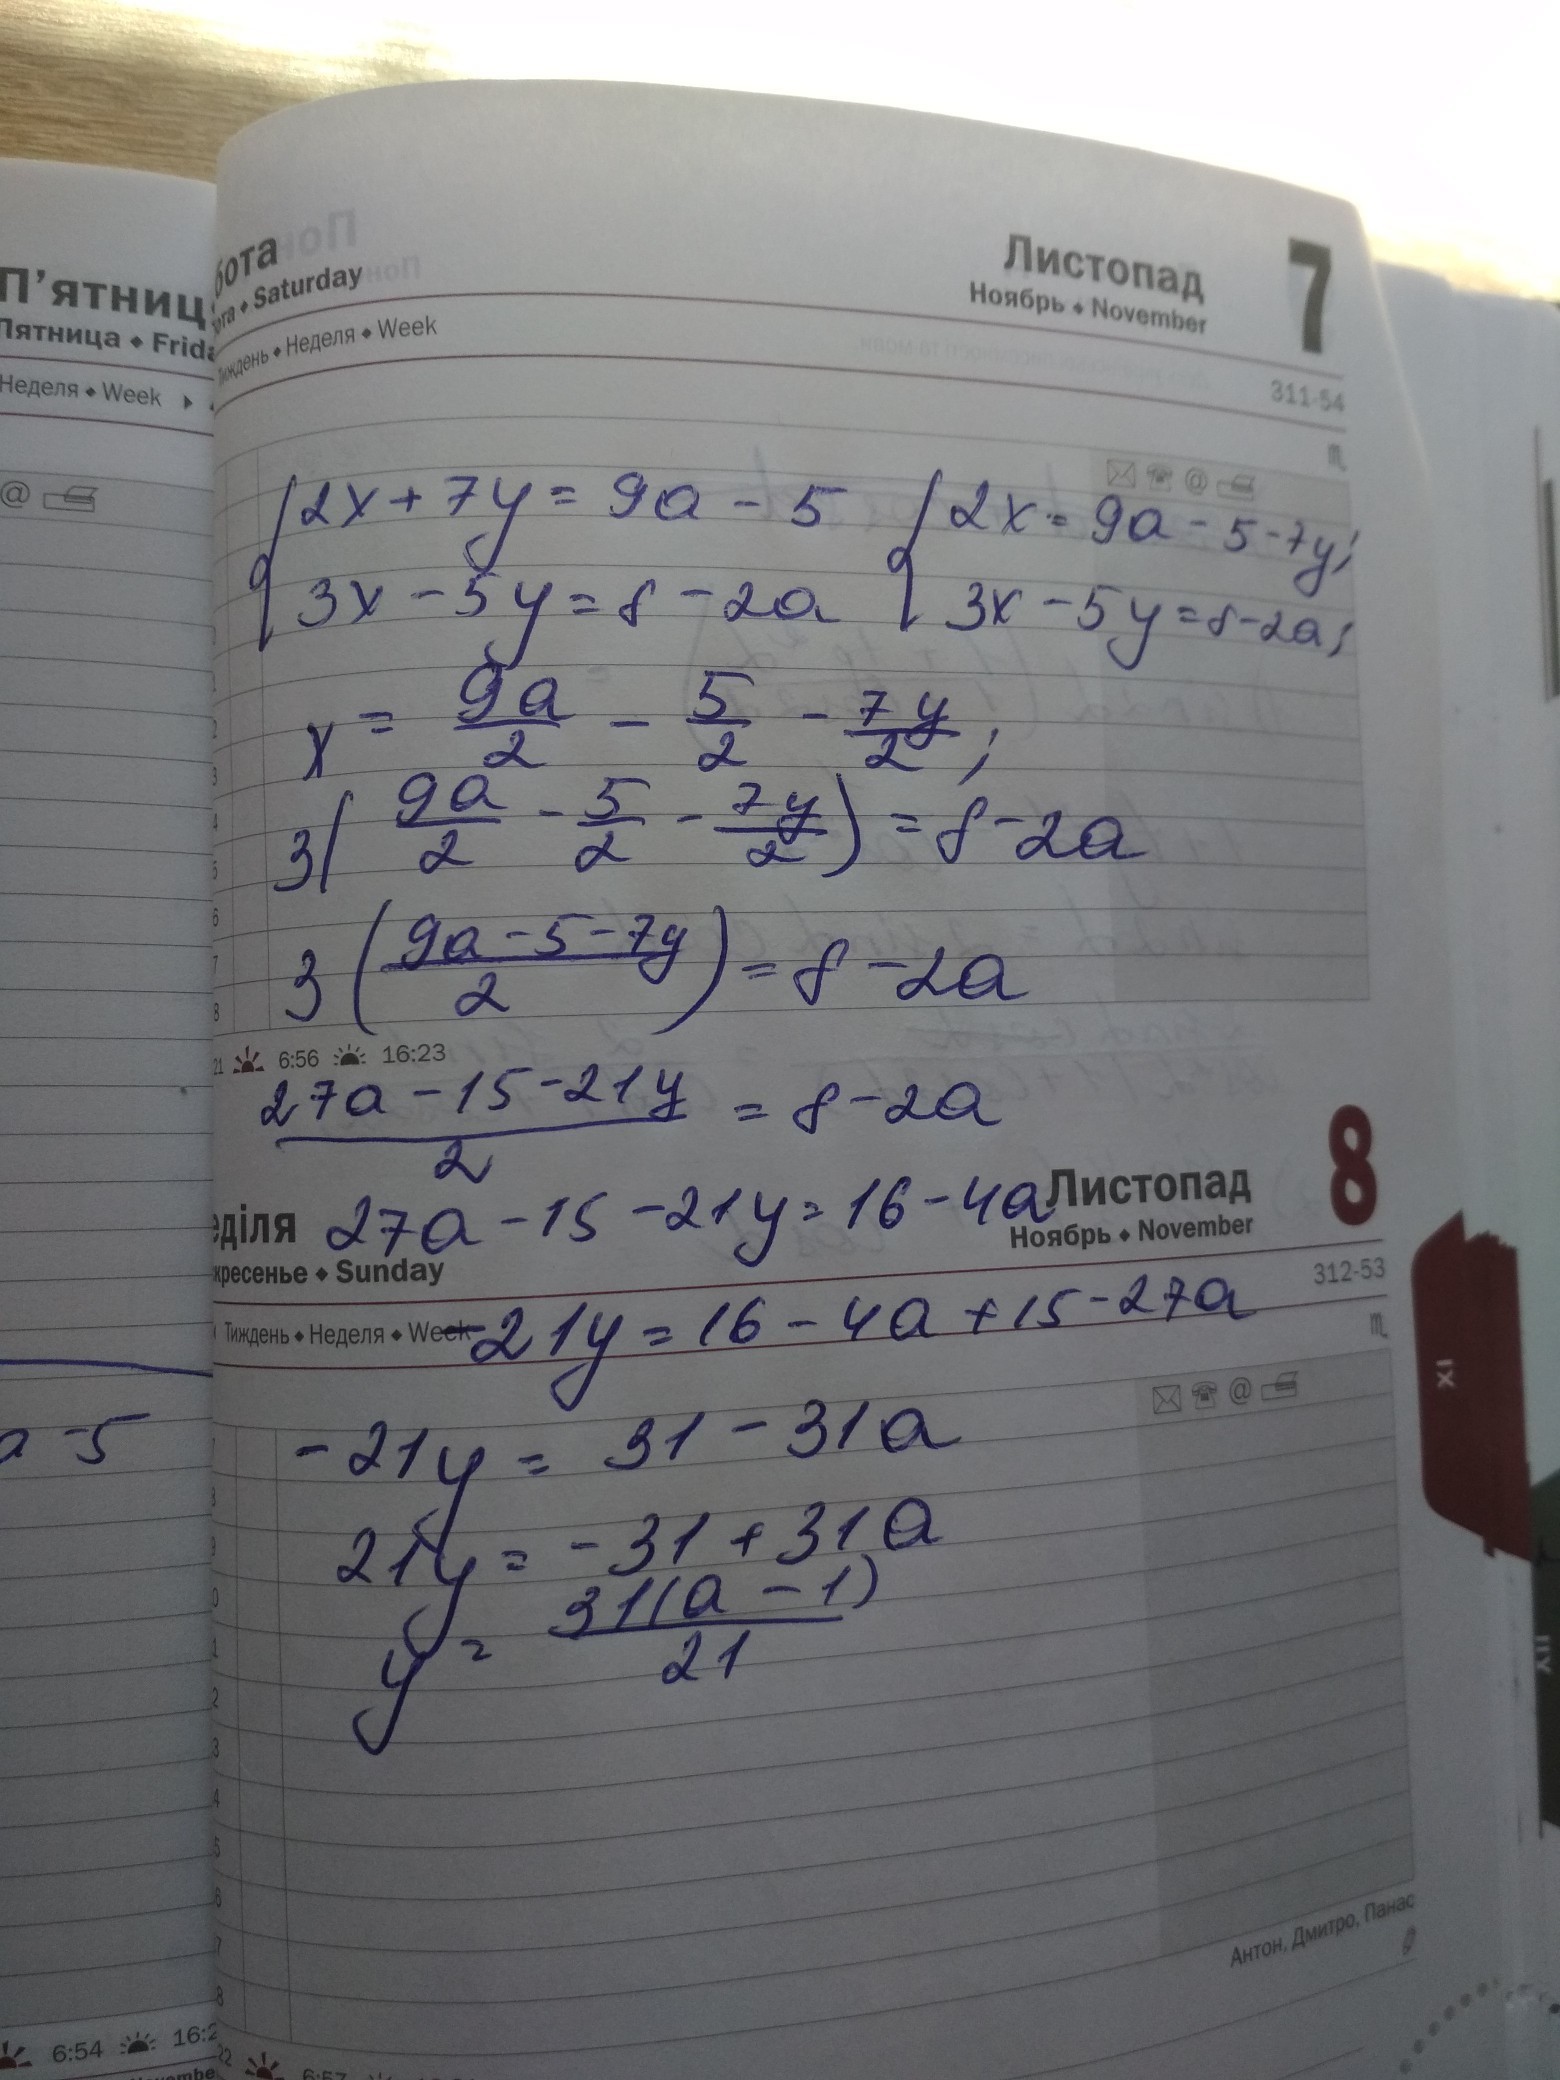 П'ятниц
Пятница ◆ Frida
Неделя ◆ Week
@
а - 5
6:54
бота
ота ◆ Saturday
Тиждень ◆ Неделя ◆ Week
Листопад 7
Ноябрь ◆ November
311-54
@
{2x + 7y = 9a - 5 {2x = 9a - 5 - 7y;
3x - 5y = 8 - 2a 3x - 5y = 8 - 2a;
x = 9a/2 - 5/2 - 7y/2;
3(9a/2 - 5/2 - 7y/2) = 8 - 2a
3(9a - 5 - 7y/2) = 8 - 2a
21 6:56 16:23
27a - 15 - 21y/2 = 8 - 2a
27a - 15 - 21y = 16 - 4a
еділя
кресенье ◆ Sunday
Листопад 8
Ноябрь ◆ November
312-53
Тиждень ◆ Неделя ◆ Week
-21y = 16 - 4a + 15 - 27a
@
-21y = 31 - 31a
21y = -31 + 31a
y = 31(a - 1)/21
Антон, Дмитро, Панас
22 6:57
XI
XII